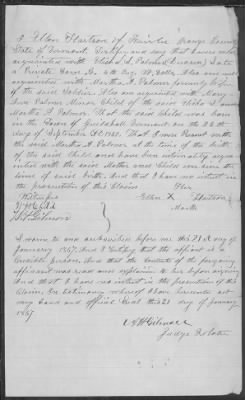 I Ellen Hartson of Fairlee Orange County
State of Vermont, Testify and say that I was well
acquainted with Elisha A. Palmer (Deceased) late
a Private Com. G. 6th Reg. Vt. Vols. Also am well
acquainted with Martha A. Palmer formerly wife
of the said Soldier. Also am acquainted with
Palmer Minor Child of the said Elisha & said
Martha A. Palmer. That the said child was born
in the Town of Guildhall Vermont on the
day of September AD. That I was Present with
the said Martha A. Palmer at the time of the birth
of the said child and have been intimately acquain-
ted with the said Mother and Child ever since the
time of said birth. And that I have no interest
in the prosecution of this Claim.
Her
Witness
Ellen X Hartson
Mark
Gilmore
Sworn to and subscribed before me this 21st day of
January 1867. And I Certify that the affiant is a
credible person. And that the contents of the foregoing
affidavit was read and explained to her before signing
And that I have no interest in the prosecution of this
Claim. In testimony whereof I have hereunto set
my hand and official Seal this 21 day of January
1867
Gilmore
Judge Probate